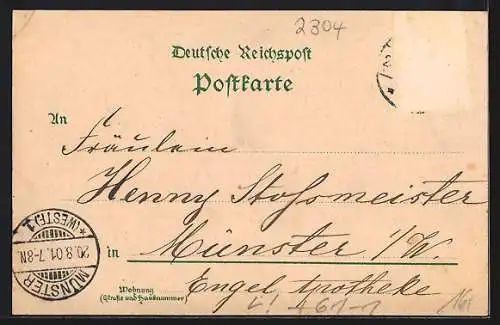 2304
Deutsche Reichspost
Postkarte
An
Fräulein
Henny Stoffmeister
in Münster i/W.
Wohnung
(Straße und Hausnummer)
Engel Apotheke
MÜNSTER
*(WESTF.) 1
20.8.01.7-8N.